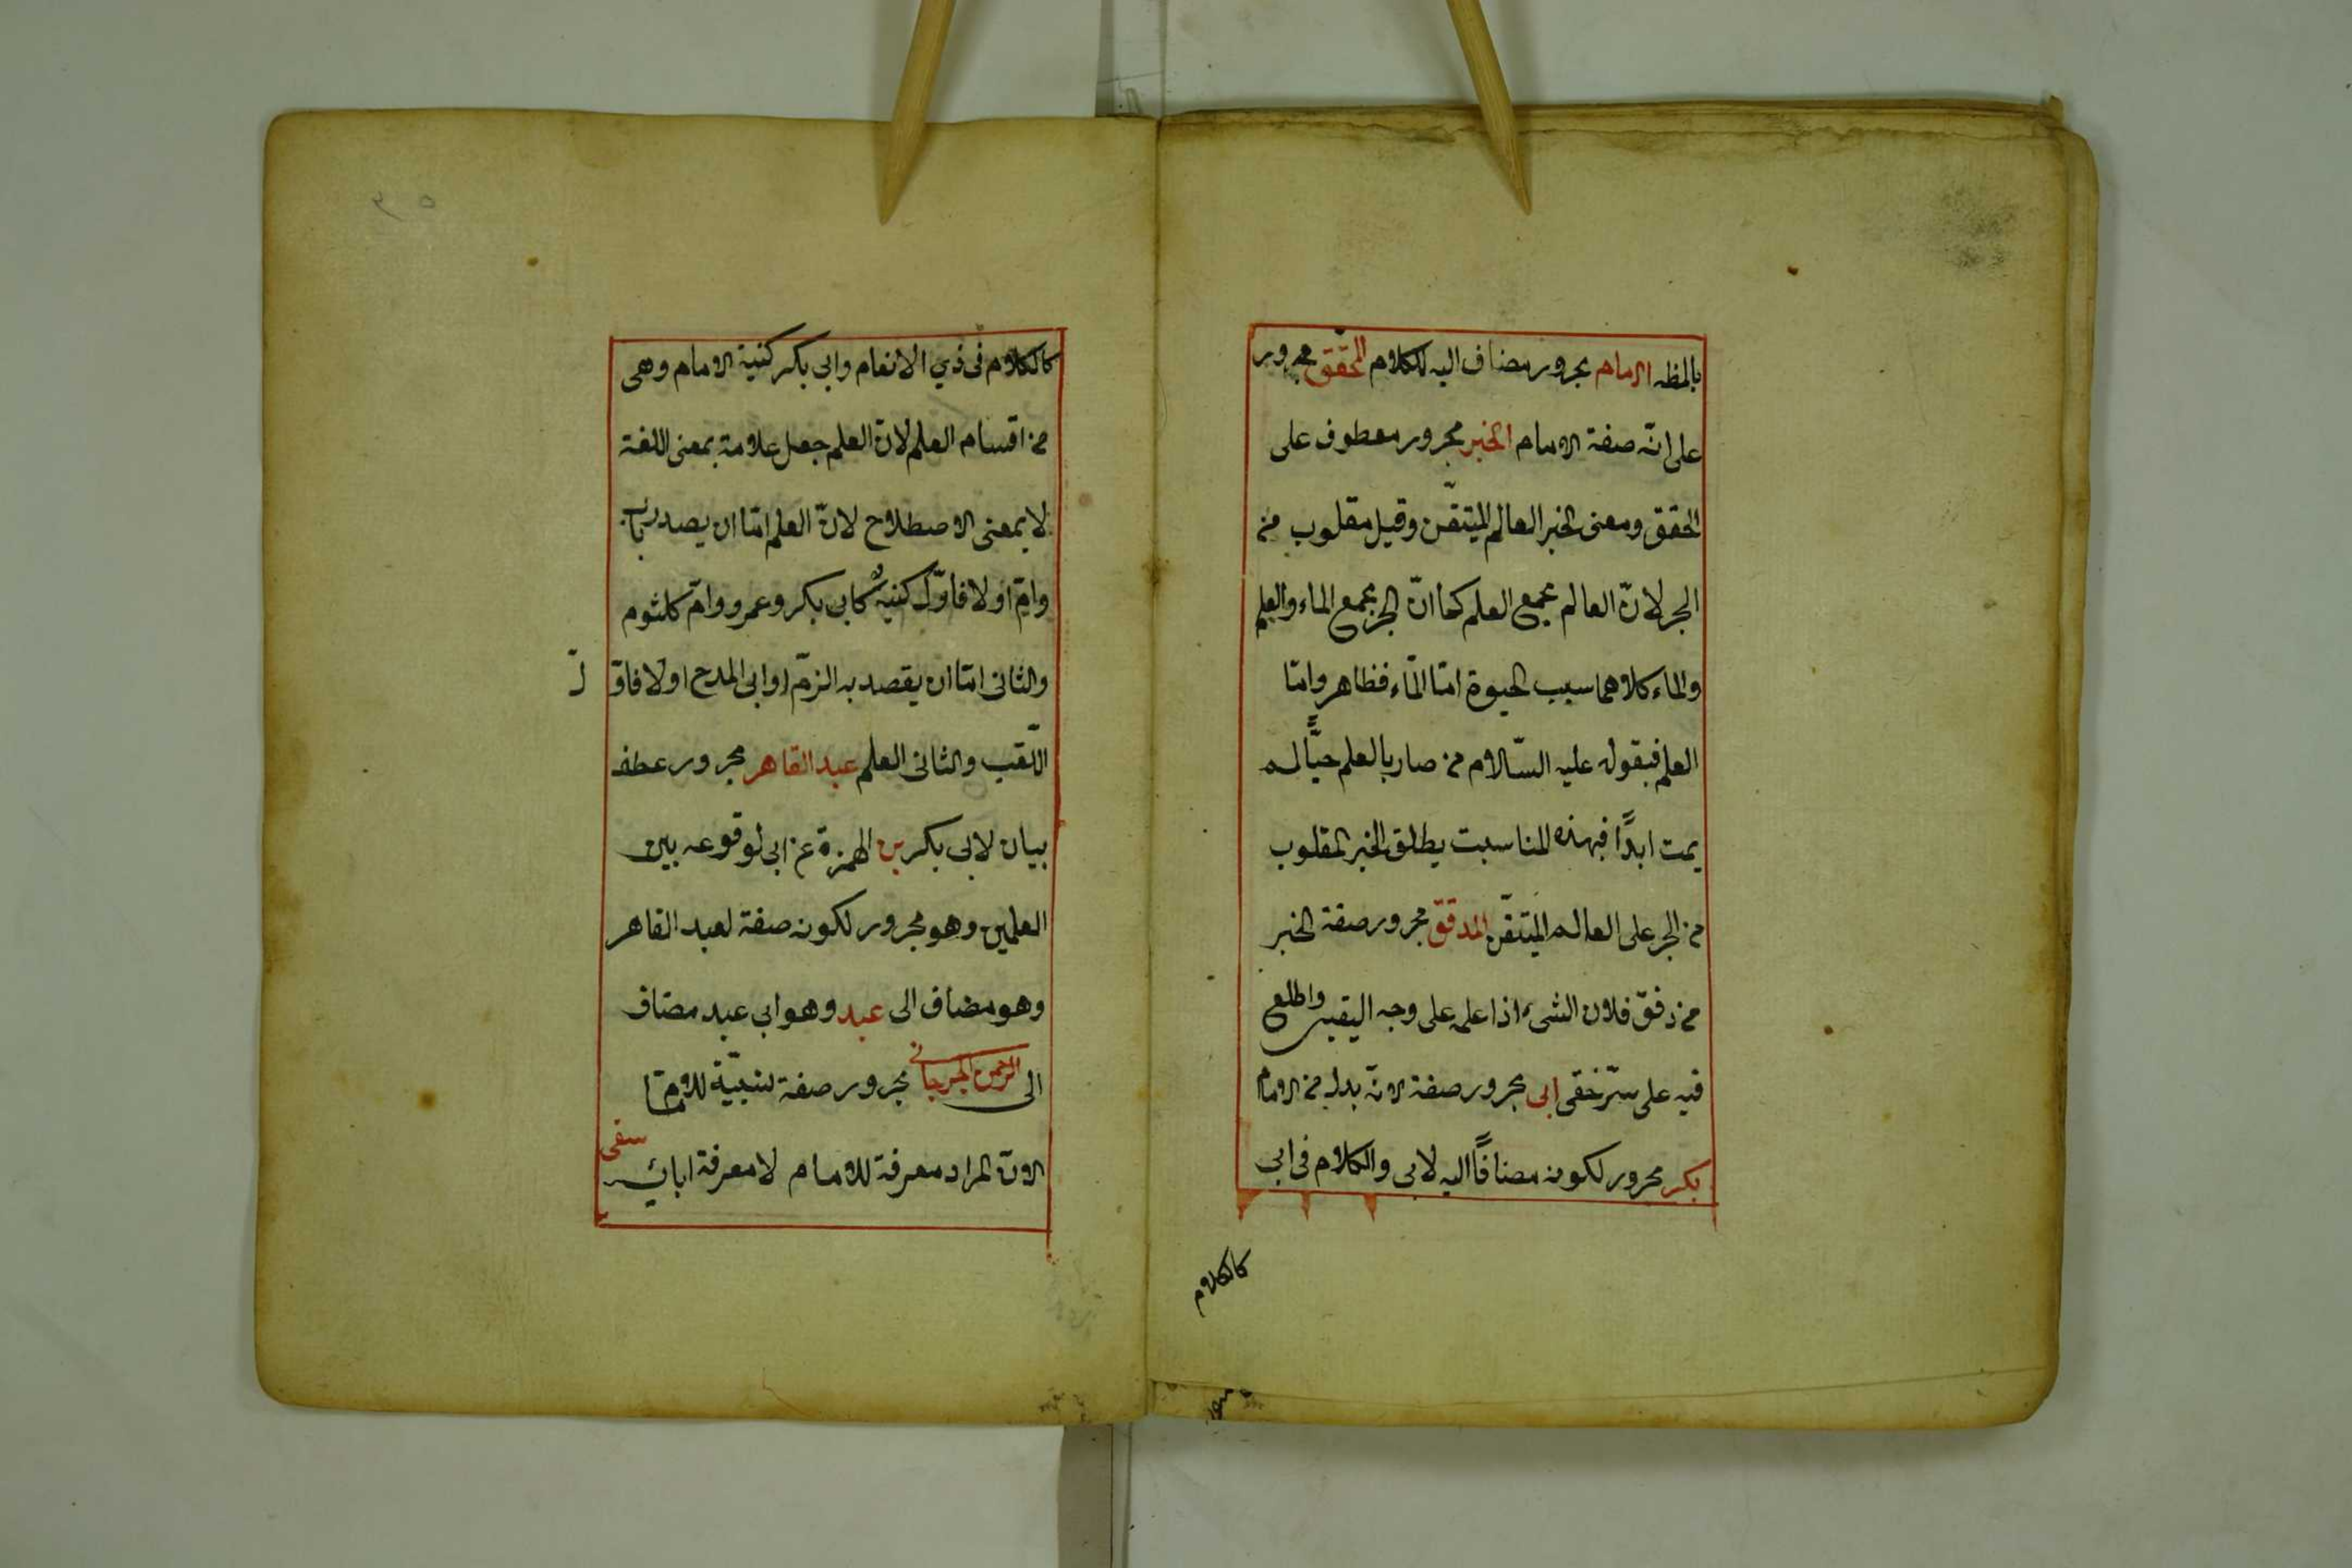 بالمظه الامام مجرور مضاف اليه للكلام المحقّق مجرور
على انّه صفة الامام الخبر مجرور معطوف على
المحقق ومعنى الخبر العالم المتيقّن وقيل مقلوب من
البحر لانّ العالم مجمع العلم كما انّ البحر مجمع الماء والعلم
والماء كلاهما سبب الحيوة امّا الماء فظاهر وامّا
العلم فبقوله عليه السّلام من صار بالعلم حيًّا لم
يمت ابدًا فبهذه المناسبت يطلق الخبر المقلوب
من البحر على العالم المتيقّن المدقّق مجرور صفة الخبر
من دقّق فلان الشىء اذا علمه على وجه اليقين واطلع
فيه على سرّ خفى ابى مجرور صفة لانّه بدل من الامام
بكر مجرور لكونه مضافًا اليه لابى والكلام فى ابى
كالكلام
كالكلام فى ذي الانعام وابى بكر كنية الامام وهى
من اقسام العلم لانّ العلم جعل علامة بمعنى اللغة
لا بمعنى الاصطلاح لانّ العلم امّا ان يصدر باب
وامّ او لا فاوّل كنيه كابى بكر وعمرو وامّ كلثوم
والثانى امّا ان يقصد به الزمّ او ابى المدح او لا فاوّل
اللّقب والثانى العلم عبد القاهر مجرور عطف
بيان لابى بكر بن الهمزة عن ابى لوقوعه بين
العلمين وهو مجرور لكونه صفة لعبد القاهر
وهو مضاف الى عبد وهو ابى عبد مضاف
الى الرحمن الجرجانى مجرور صفة للامام
لانّ المراد معرفة للامام لا معرفة ابائه سقى